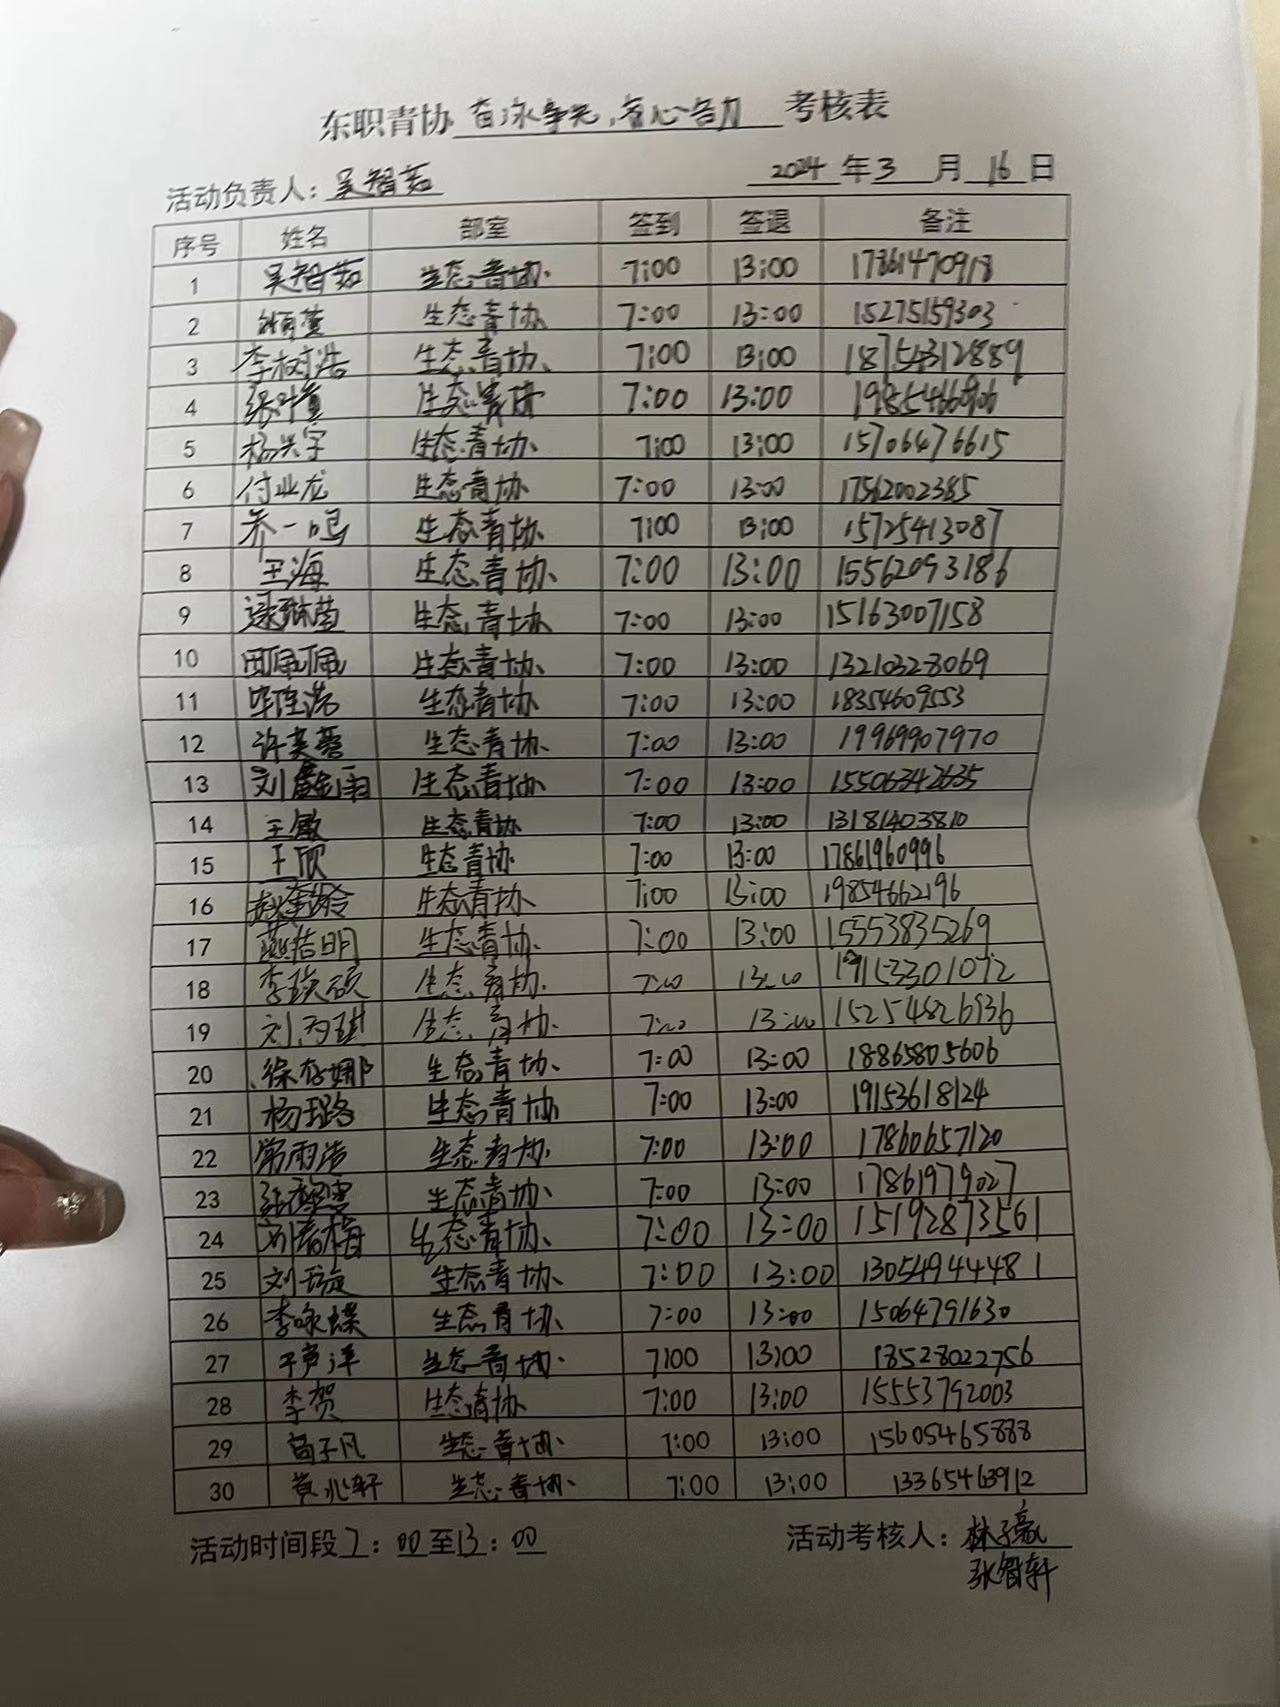 东职青协 百泳争先,有心合力 考核表
活动负责人: 吴智茹 2024 年 3 月 16 日
序号 姓名 部室 签到 签退 备注
1 吴智茹 生态青协 7:00 13:00 17861470918
2 生态青协 7:00 13:00 15275159303
3 李树浩 生态青协 7:00 13:00 18754312889
4 生态青协 7:00 13:00
5 杨兴宇 生态青协 7:00 13:00 15706476615
6 付业龙 生态青协 7:00 13:00 17562002385
7 乔一鸣 生态青协 7:00 13:00 15725413087
8 王海 生态青协 7:00 13:00 15562093186
9 生态青协 7:00 13:00 15163007158
10 田佩佩 生态青协 7:00 13:00 13210328069
11 生态青协 7:00 13:00 18354609553
12 许芙蓉 生态青协 7:00 13:00 19969907970
13 刘鑫雨 生态青协 7:00 13:00 15506342635
14 王敏 生态青协 7:00 13:00 13181403810
15 王欣 生态青协 7:00 13:00 17861960996
16 生态青协 7:00 13:00 19854662196
17 燕浩明 生态青协 7:00 13:00 15553835269
18 李瑛硕 生态青协 7:00 13:00 19153301072
19 刘丙琪 生态青协 7:00 13:00 15254826936
20 徐存娜 生态青协 7:00 13:00 18865805606
21 杨璐 生态青协 7:00 13:00 19153618124
22 常雨浩 生态青协 7:00 13:00 17860657120
23 生态青协 7:00 13:00 17861979027
24 刘春梅 生态青协 7:00 13:00 15192873561
25 刘钰旋 生态青协 7:00 13:00 13054944481
26 李咏蝶 生态青协 7:00 13:00 15064791630
27 于声洋 生态青协 7:00 13:00 18528022756
28 李贺 生态青协 7:00 13:00 15553792003
29 苗子凡 生态青协 7:00 13:00 15605465888
30 黄兆轩 生态青协 7:00 13:00 13365463912
活动时间段 7:00 至 13:00 活动考核人: 林子豪
张智轩